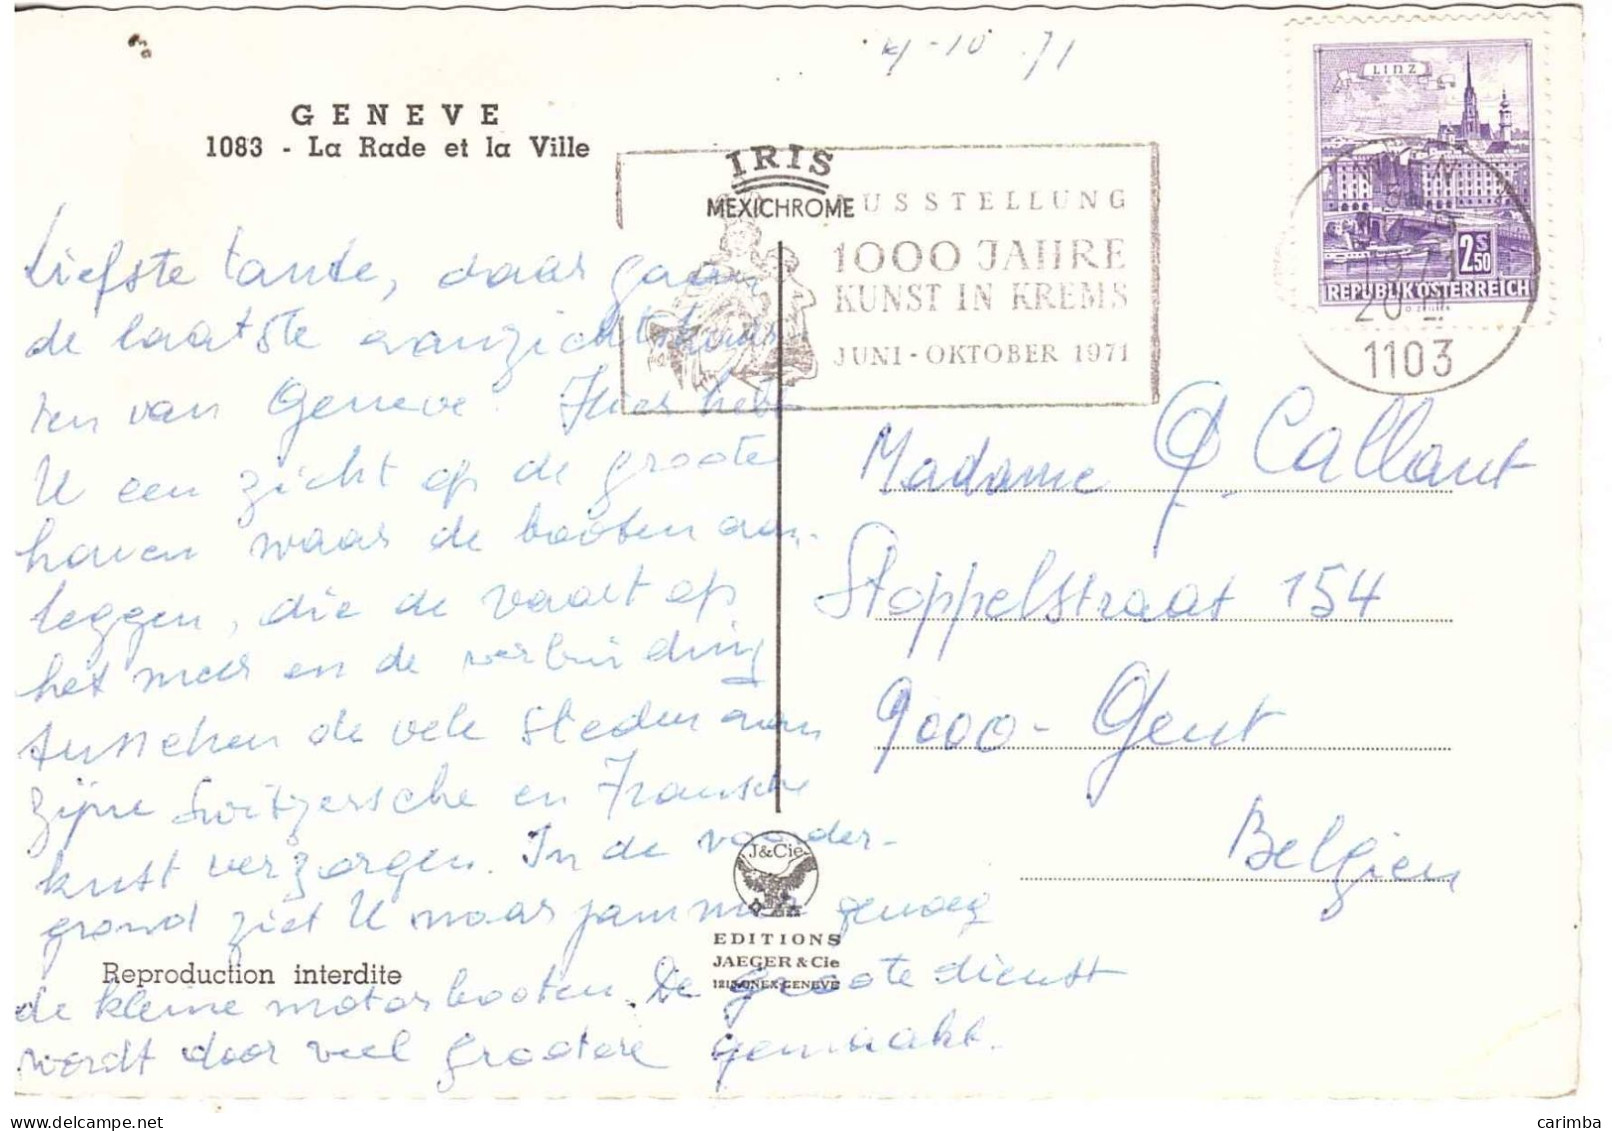 4-10 71
GENEVE
1083 - La Rade et la Ville
IRIS
MEXICHROME
USSTELLUNG
1000 JAHRE
KUNST IN KREMS
JUNI - OKTOBER 1971
LINZ
2S50
REPUBLIK ÖSTERREICH
WIEN
20
1103
Liefste tante, daar gaan
de laatste aanzichtkaar
ten van Geneve. Hier hebt
U een zicht op de groote
haven waar de booten aan-
leggen, die de vaart op
het meer en de verbinding
tusschen de vele steden aan
zijne Switzersche en Fransche
kust verzorgen. In de voorder-
grond ziet U maar jammer genoeg
de kleine motorbooten. De groote dienst
wordt door veel grootere gemaakt.
Madame Callant
Stoppelstraat 154
9000 - Gent
Belgien
J&Cie
EDITIONS
JAEGER & Cie
GENEVE
Reproduction interdite
carimba